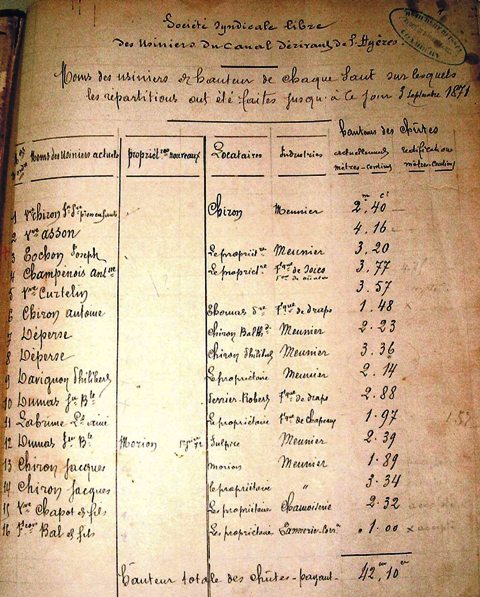 Société Syndicale libre
des Usiniers du Canal dérivant de l'Hyères.
Noms des usiniers & hauteur de chaque saut sur lesquels
les répartitions ont été faites jusqu'à ce jour 3 Septembre 1871
hauteurs des chûtes
Noms des Usiniers actuels propriét.res nouveaux Locataires Industries actuellement mètres-centim rectifications mètres-centim
1 Chiron Chiron Meunier 2.40
2 Vve asson 4.16
3 Cochon Joseph Le propriét.re Meunier 3.20
4 Champenois ant.ne Le propriét.re 3.77
5 Vve Curtelin 3.57
6 Chiron antoine Thomas f.que de draps 1.48
7 Déperse Chiron Balth. Meunier 2.23
8 Déperse Chiron Philibert Meunier 3.36
9 Davignon Philibert Le propriétaire Meunier 2.14
10 Dumas Jn Bte Perrier-Robert f.que de draps 2.88
11 Labrune Ls aîné Le propriétaire f.que de chapeaux 1.97
12 Dumas Jn Bte Morion Sulpice Meunier 2.39
13 Chiron Jacques Morion Meunier 1.89
14 Chiron Jacques le propriétaire " 3.34
15 Vve Chapot & fils Le propriétaire Chamoiserie 2.32
16 Bal & fils Le propriétaire 1.00
hauteur totale des chûtes-payant 42m,10